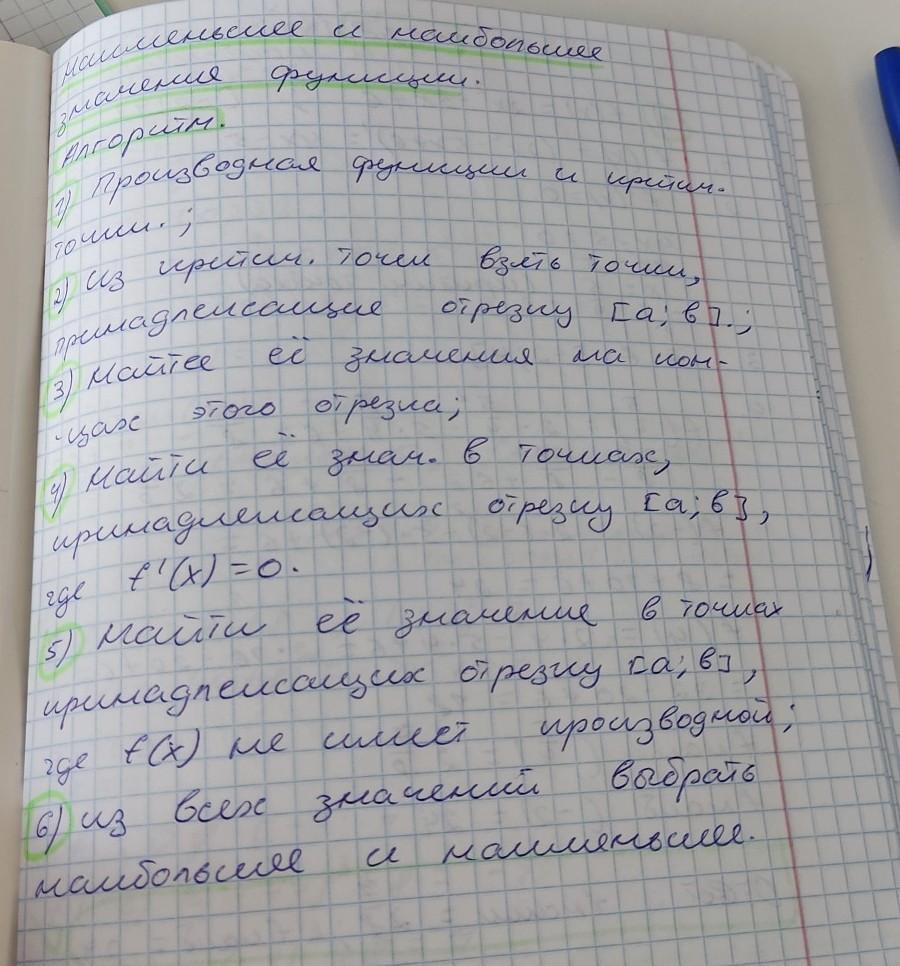 Наименьшее и наибольшее
значения функции.
Алгоритм.
1) Производная функции и критич.
точки. ;
2) Из критич. точек взять точки,
принадлежащие отрезку [a; в]. ;
3) Найтее её значения на кон-
-цах этого отрезка;
4) Найти её знач. в точках,
принадлежащих отрезку [a; в],
где f'(x) = 0.
5) Найти её значение в точках
принадлежащих отрезку [a; в],
где f(x) не имеет производной;
6) Из всех значений выбрать
наибольшее и наименьшее.